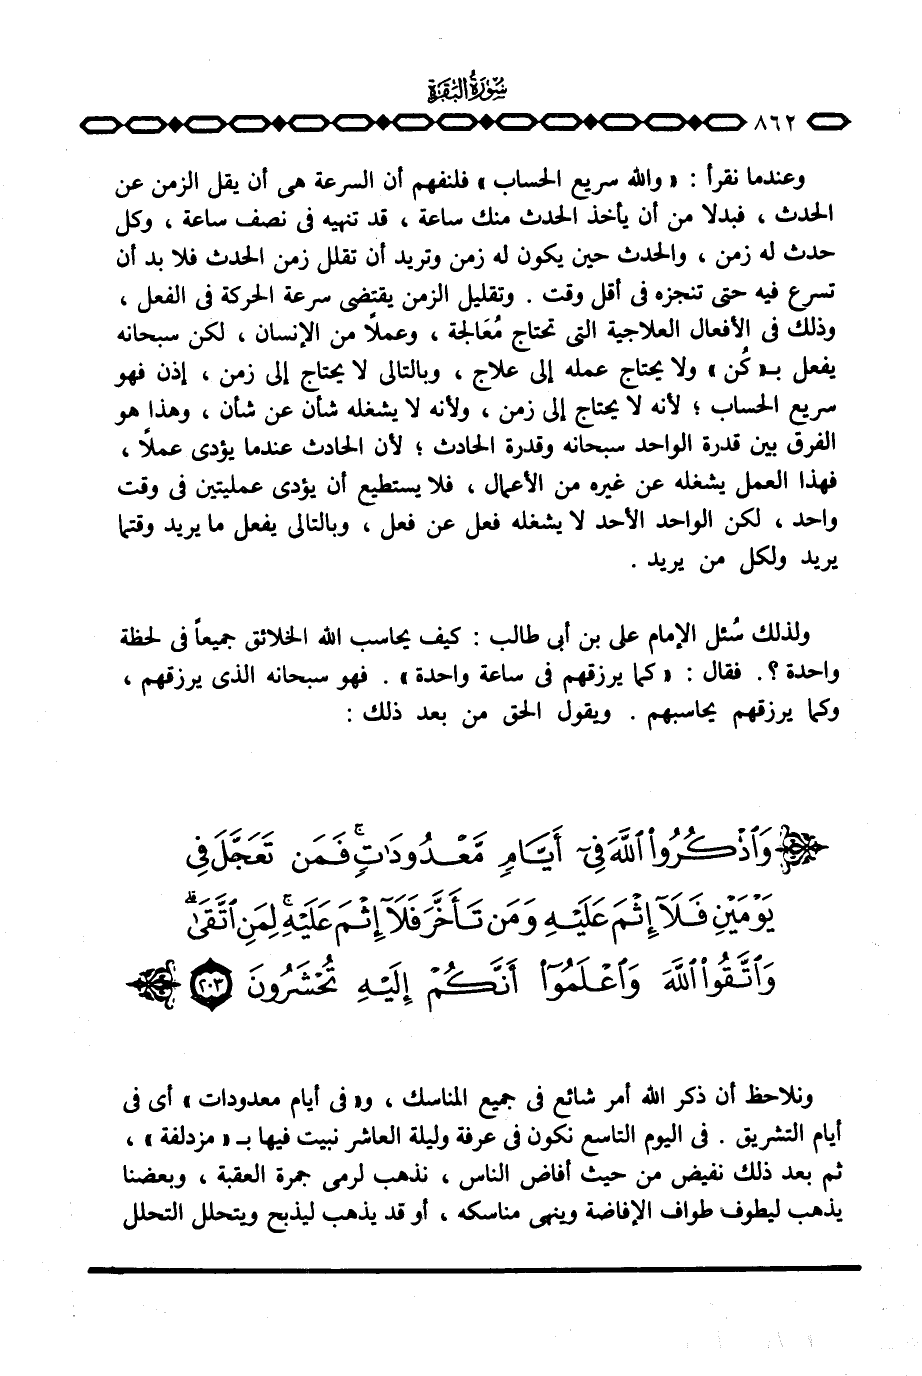 سُورَةُ البَقَرَة
٨٦٢
وعندما نقرأ : « والله سريع الحساب » فلنفهم أن السرعة هى أن يقل الزمن عن
الحدث ، فبدلا من أن يأخذ الحدث منك ساعة ، قد تنهيه فى نصف ساعة ، وكل
حدث له زمن ، والحدث حين يكون له زمن وتريد أن تقلل زمن الحدث فلا بد أن
تسرع فيه حتى تنجزه فى أقل وقت . وتقليل الزمن يقتضى سرعة الحركة فى الفعل ،
وذلك فى الأفعال العلاجية التى تحتاج مُعَالجة ، وعملًا من الإنسان ، لكن سبحانه
يفعل بـ« كُن » ولا يحتاج عمله إلى علاج ، وبالتالى لا يحتاج إلى زمن ، إذن فهو
سريع الحساب ؛ لأنه لا يحتاج إلى زمن ، ولأنه لا يشغله شأن عن شأن ، وهذا هو
الفرق بين قدرة الواحد سبحانه وقدرة الحادث ؛ لأن الحادث عندما يؤدى عملًا ،
فهذا العمل يشغله عن غيره من الأعمال ، فلا يستطيع أن يؤدى عمليتين فى وقت
واحد ، لكن الواحد الأحد لا يشغله فعل عن فعل ، وبالتالى يفعل ما يريد وقتما
يريد ولكل من يريد .
ولذلك سُئل الإمام على بن أبى طالب : كيف يحاسب الله الخلائق جميعاً فى لحظة
واحدة ؟. فقال : « كما يرزقهم فى ساعة واحدة » . فهو سبحانه الذى يرزقهم ،
وكما يرزقهم يحاسبهم . ويقول الحق من بعد ذلك :
وَٱذْكُرُوا۟ ٱللَّهَ فِىٓ أَيَّامٍ مَّعْدُودَٰتٍۚ فَمَن تَعَجَّلَ فِى
يَوْمَيْنِ فَلَآ إِثْمَ عَلَيْهِ وَمَن تَأَخَّرَ فَلَآ إِثْمَ عَلَيْهِۚ لِمَنِ ٱتَّقَىٰۗ
وَٱتَّقُوا۟ ٱللَّهَ وَٱعْلَمُوٓا۟ أَنَّكُمْ إِلَيْهِ تُحْشَرُونَ ٢٠٣
ونلاحظ أن ذكر الله أمر شائع فى جميع المناسك ، و« فى أيام معدودات » أى فى
أيام التشريق . فى اليوم التاسع نكون فى عرفة وليلة العاشر نبيت فيها بـ « مزدلفة » ،
ثم بعد ذلك نفيض من حيث أفاض الناس ، نذهب لرمى جمرة العقبة ، وبعضنا
يذهب ليطوف طواف الإفاضة وينهى مناسكه ، أو قد يذهب ليذبح ويتحلل التحلل